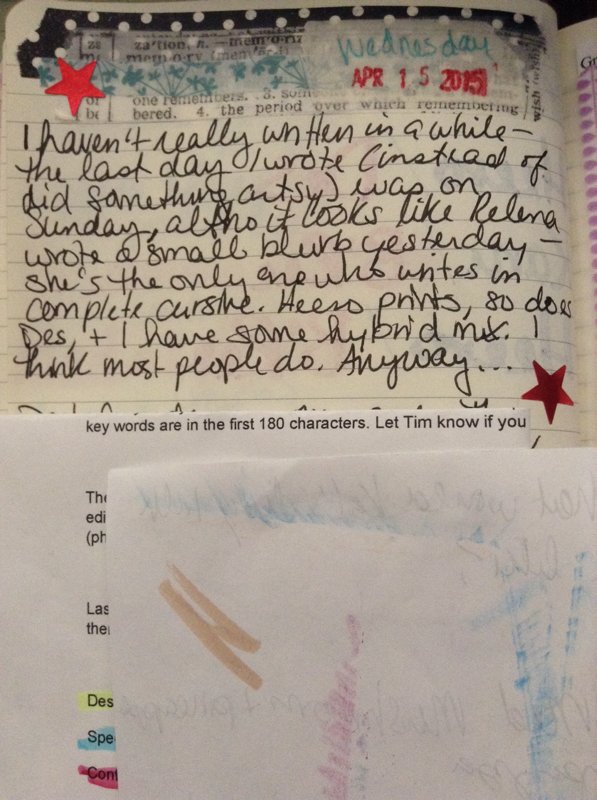 za'tion, n. — mem·o·riz
mem·o·ry (mem
Wednesday
APR 15 2015
one remembers. 3. som
bered. 4. the period over which remembering
wish
I haven't really written in a while —
the last day I wrote (instead of
did something artsy) was on
Sunday, altho it looks like Relena
wrote a small blurb yesterday —
she's the only one who writes in
complete cursive. Heero prints, so does
Des, + I have some hybrid mix. I
think most people do. Anyway...
key words are in the first 180 characters. Let Tim know if you
The
edi
(ph
Las
the
Des
Spe
Con